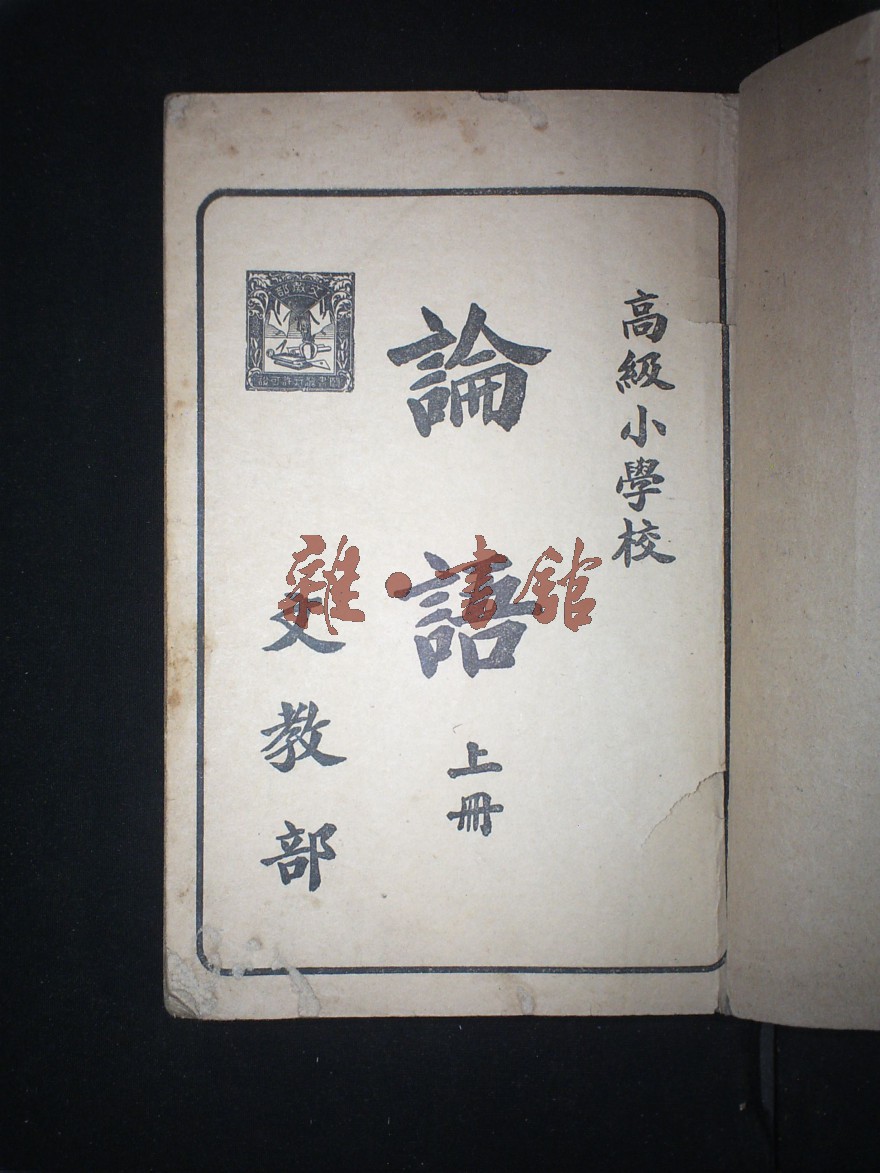 高級小學校
論語 上冊
文教部
文教部
雜·書館